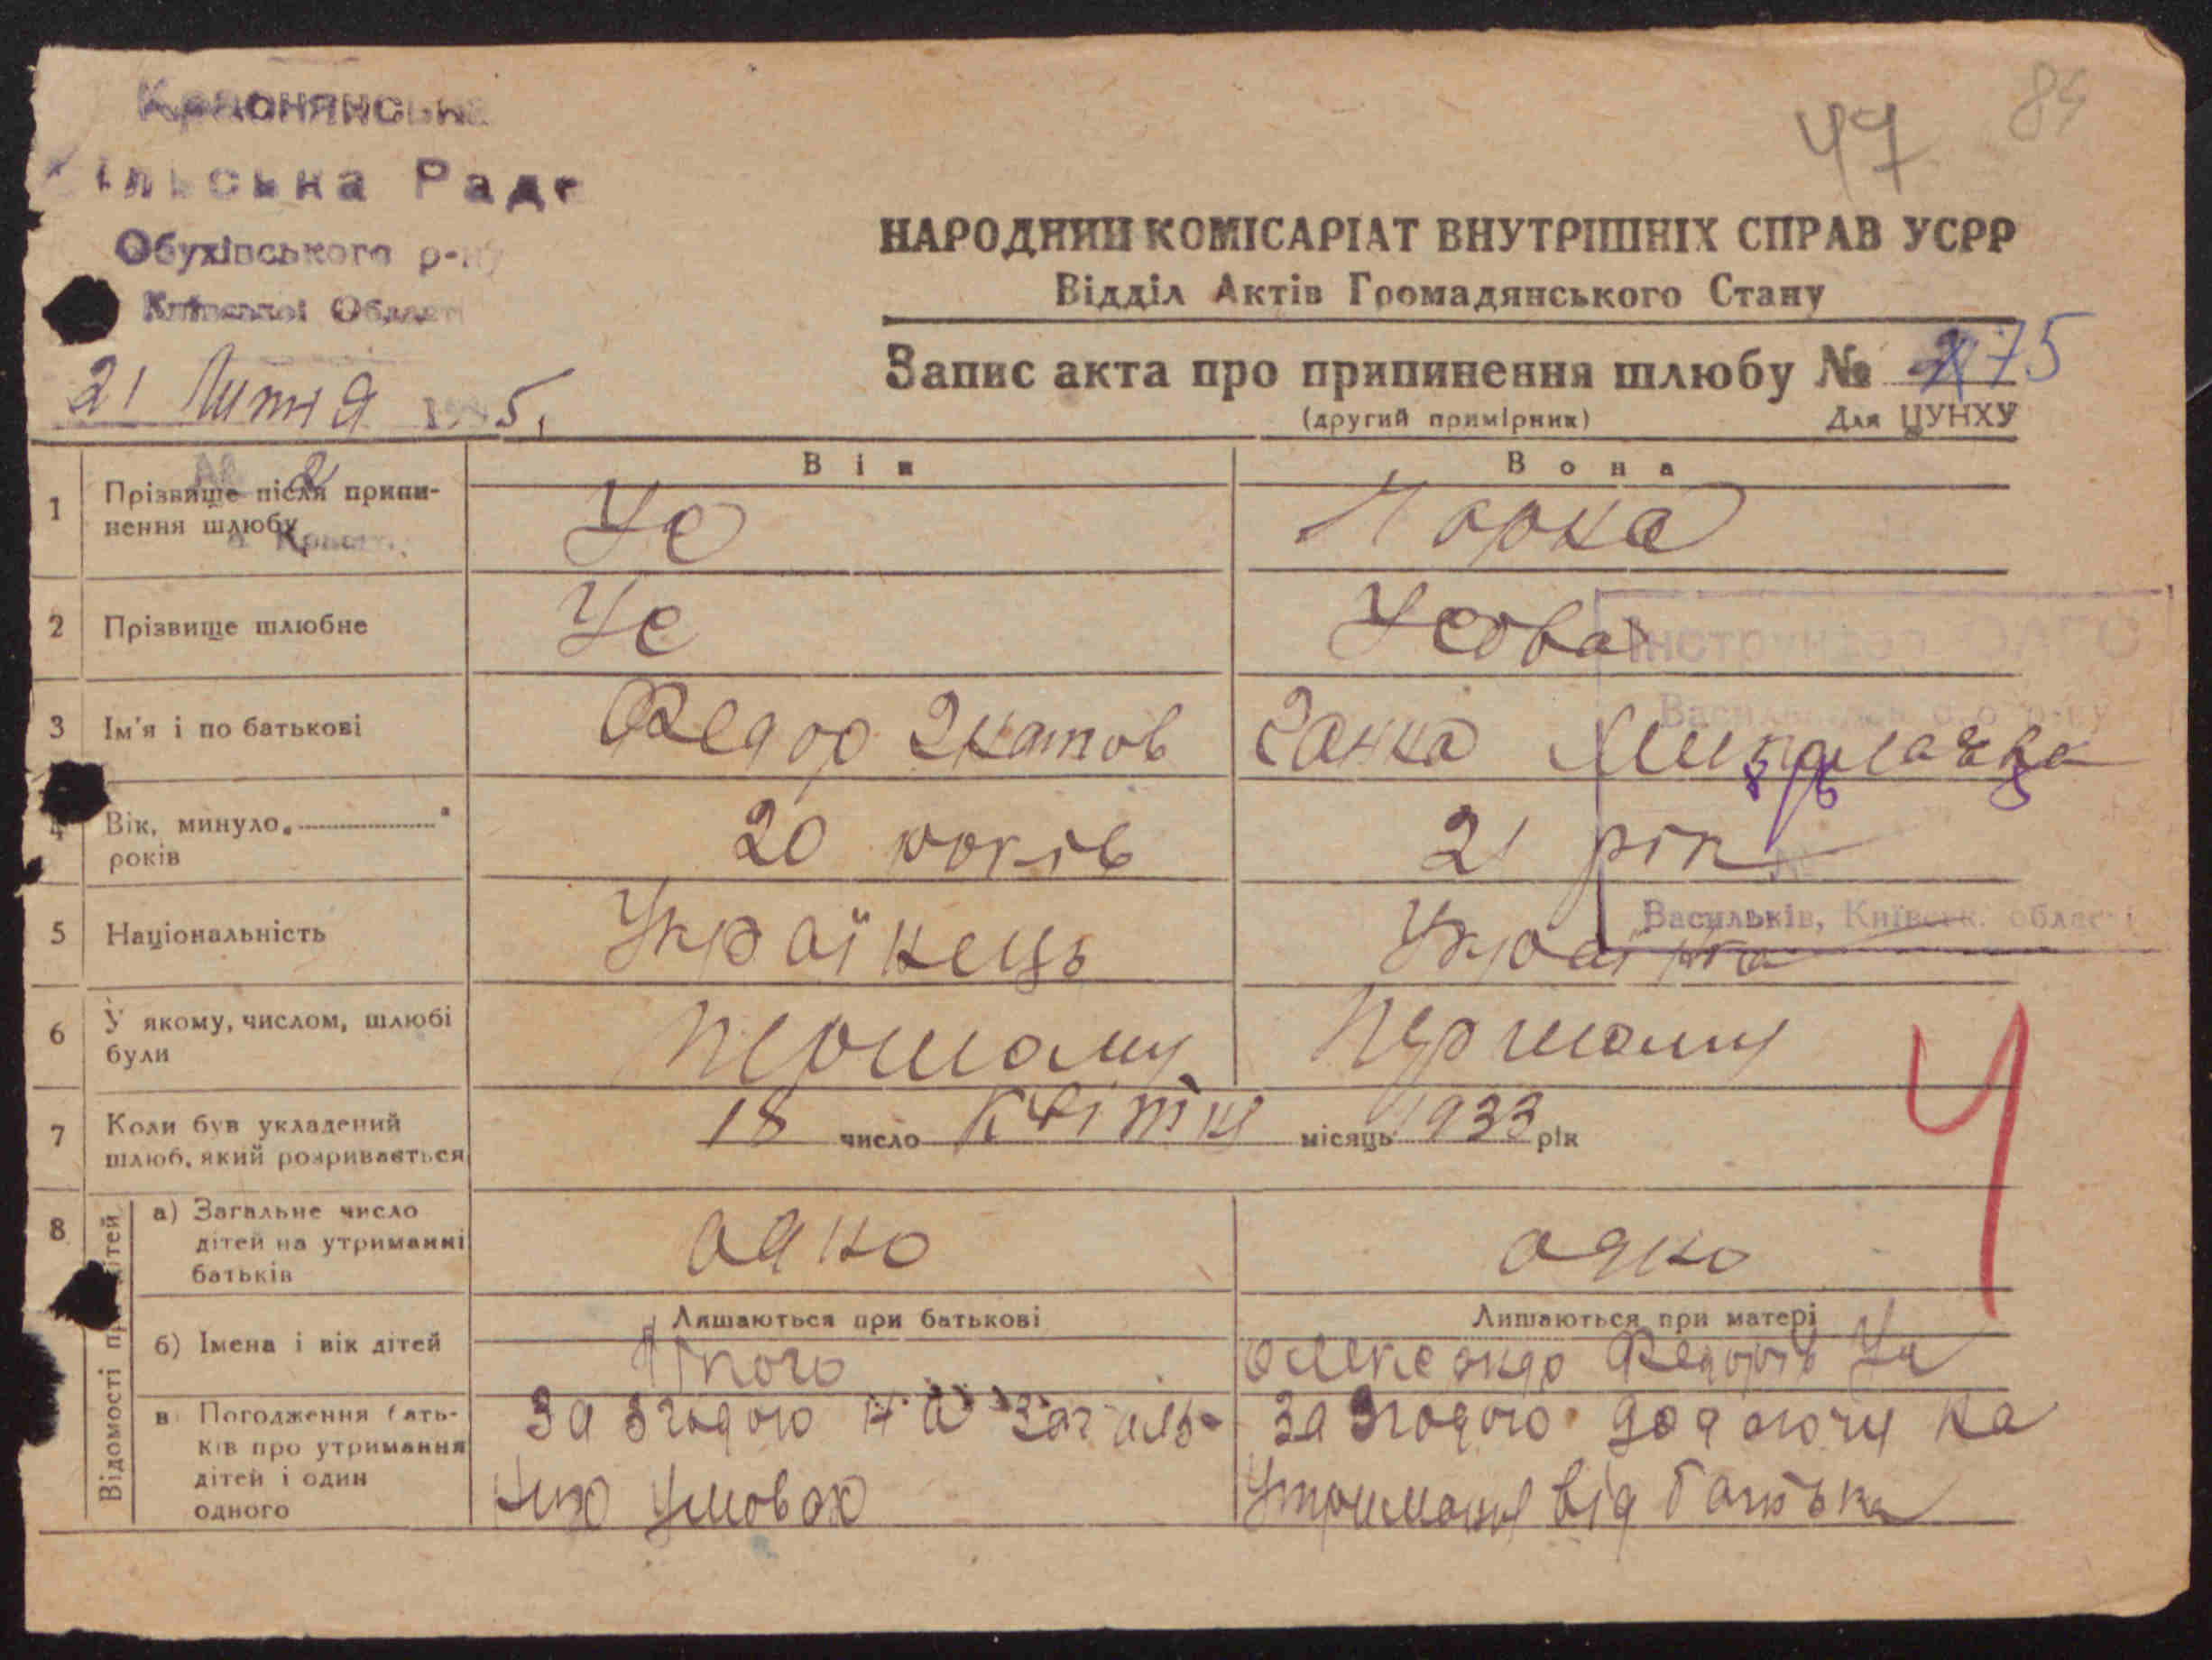 47 84
Краснянська
Сільська Рада
Обухівського р-ну
Київської Області
21 Липня 1935
№ 2
с. Красн.
НАРОДНИЙ КОМІСАРІАТ ВНУТРІШНІХ СПРАВ УСРР
Відділ Актів Громадянського Стану
Запис акта про припинення шлюбу № 75
(другий примірник) Для ЦУНХУ
Він Вона
1 Прізвище після припи-
нення шлюбу Ус Чорка
2 Прізвище шлюбне Ус Усова
3 Ім'я і по батькові Федор Ганна
4 Вік, минуло „ “
років 20 років 21 рік
5 Національність Українець Українка
6 У якому, числом, шлюбі
були першому першому
7 Коли був укладений
шлюб, який розривається 18 число Квітня місяць 1933 рік
8 Відомості про дітей
а) Загальне число
дітей на утриманні
батьків одно одно
Лишаються при батькові Лишаються при матері
б) Імена і вік дітей Нікого Олександр Федорів Ус
в Погодження бать-
ків про утримання
дітей і один
одного
За згодою на загаль-
них умовах
За згодою на
утриманя від батька
Інструктор ЗАГС
Васильківськ. р-ну
Васильків, Київськ. області
Ч